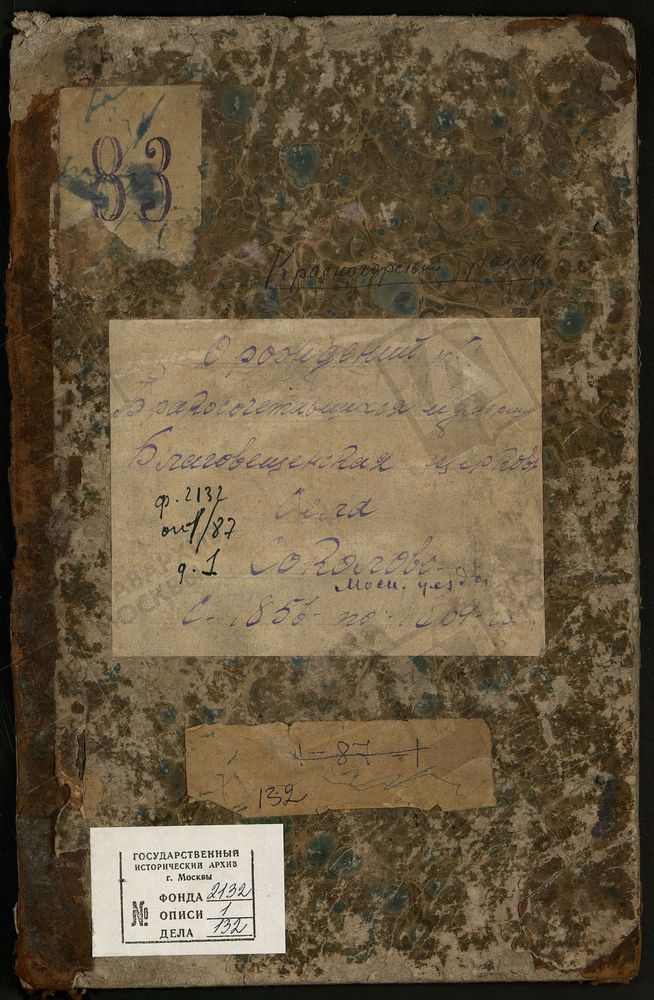 83
Красногорский район
О рождений и
Бракосочетавшихся и умерш
Благовещенская церковь
Села
ф. 2132
оп 1/87
д. 1
Соколово
Моск. уезда
С 1856 по 1864 г.
87
132
ГОСУДАРСТВЕННЫЙ
ИСТОРИЧЕСКИЙ АРХИВ
г. Москвы
№
ФОНДА 2132
ОПИСИ 1
ДЕЛА 132